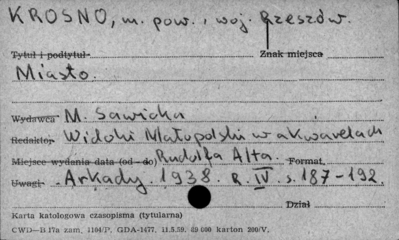 KROSNO, m. pow., woj. Rzeszów.
Tytuł i podtytuł Znak miejsca
Miasto.
Wydawca M. Sawicka
Redaktor Widoki Małopolski w akwarelach
Miejsce wydania data (od - do) Rudolfa Alta. Format
Uwagi Arkady. 1938. R. IV. s. 187-192.
Dział
Karta katalogowa czasopisma (tytularna)
CWD-B 17a zam. 1104/P. GDA-1477. 11.5.59. 69 000 karton 200/V.